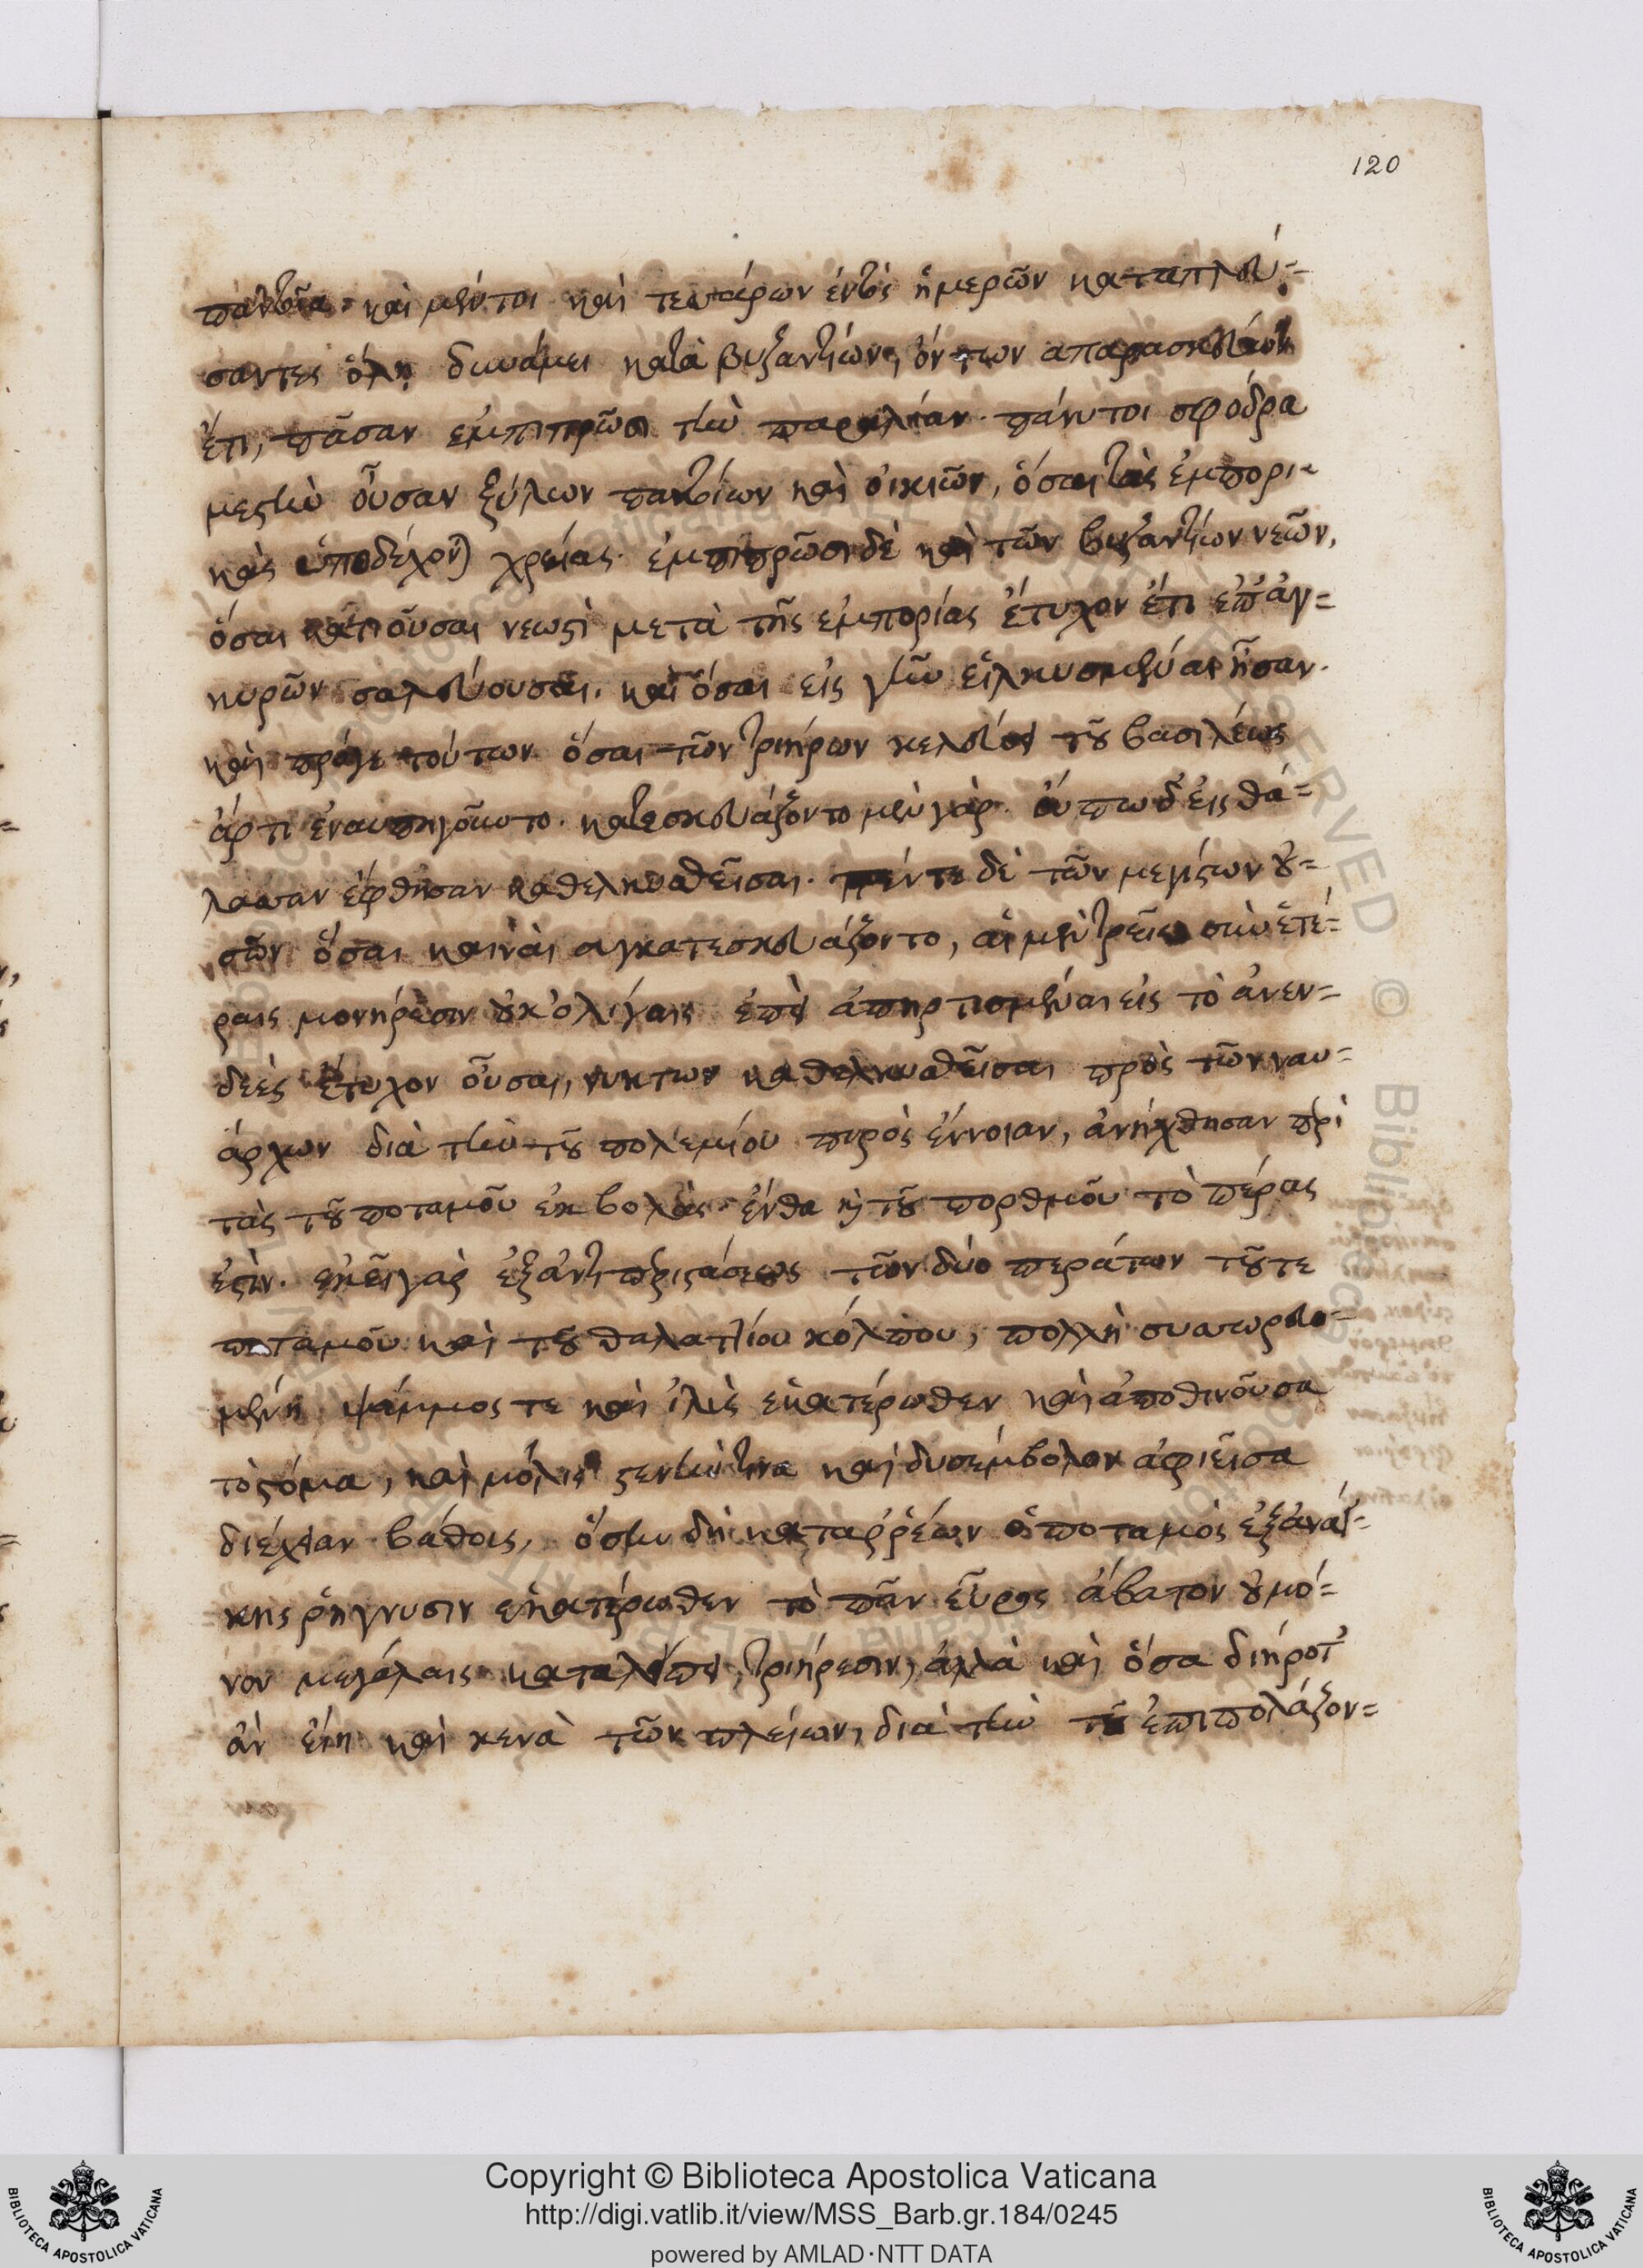 120
παντοῖα· καὶ μέντοι καὶ τεσσάρων ἐντὸς ἡμερῶν καταπλεύ=
σαντες ὅλῃ δυνάμει κατὰ βυζαντίων, ὄντων ἀπαρασκεύων
ἔτι, πᾶσαν ἐμπιπρῶσι τὴν παραλίαν· πάνυ τοι σφόδρα
μεστὴν οὖσαν ξύλων παντοίων καὶ οἰκιῶν, ὅσαι τὰς ἐμπορι=
κὰς ὑποδέχονται χρείας· ἐμπιπρῶσι δὲ καὶ τῶν βυζαντίων νεῶν,
ὅσαι κατιοῦσαι νεωστὶ μετὰ τῆς ἐμπορίας ἔτυχον ἔτι ἐπ' ἀγ=
κυρῶν σαλεύουσαι· καὶ ὅσαι εἰς γῆν εἱλκυσμέναι ἦσαν·
καὶ πρός γε τούτων ὅσαι τῶν τριήρων κελεύσει τοῦ βασιλέως
ἄρτι ἐναυπηγοῦντο· κατεσκευάζοντο μὲν γὰρ· οὔπω δ' εἰς θά=
λασσαν ἔφθησαν καθελκυσθεῖσαι· πέντε δὲ τῶν μεγίστων οὐ=
σῶν ὅσαι καιναὶ συγκατεσκευάζοντο, αἱ μὲν τρεῖς σὺν ἑτέ=
ραις μονήρεσιν οὐκ ὀλίγαις ἐπεὶ ἀπηρτισμέναι εἰς τὸ ἀνεν=
δεὲς ἔτυχον οὖσαι, νύκτωρ καθελκυσθεῖσαι πρὸς τῶν ναυ=
άρχων διὰ τὴν τοῦ πολεμίου πυρὸς ἔννοιαν, ἀνήχθησαν περὶ
τὰς τοῦ ποταμοῦ ἐκβολὰς· ἔνθα καὶ τοῦ πορθμοῦ τὸ πέρας
ἐστίν· ἐκεῖ γὰρ ἐξ ἀντιπεριστάσεως τῶν δύο περάτων τοῦ τε
ποταμοῦ καὶ τοῦ θαλαττίου κόλπου, πολλὴ συσσωρευο=
μένη ψάμμος τε καὶ ἰλὺς ἑκατέρωθεν καὶ ἀποθινοῦσα
τὸ στόμα, καὶ μόλις στενήν τινα καὶ δυσέμβολον ἀφιεῖσα
διέχειαν βάθους, ὅσην δὴ καταρρέων ὁ ποταμὸς ἐξ ἀνάγ=
κης ῥήγνυσιν ἑκατέρωθεν τὸ πᾶν εὖρος ἄβατον οὐ μό=
νον μεγάλαις καταλείπει τριήρεσιν, ἀλλὰ καὶ ὅσα διήροτ'
ἂν εἴη καὶ κενὰ τῶν πλείων, διὰ τὴν τοῦ ἐπιπολάζον=
Copyright © Biblioteca Apostolica Vaticana
http://digi.vatlib.it/view/MSS_Barb.gr.184/0245
powered by AMLAD·NTT DATA
BIBLIOTECA APOSTOLICA VATICANA
BIBLIOTECA APOSTOLICA VATICANA